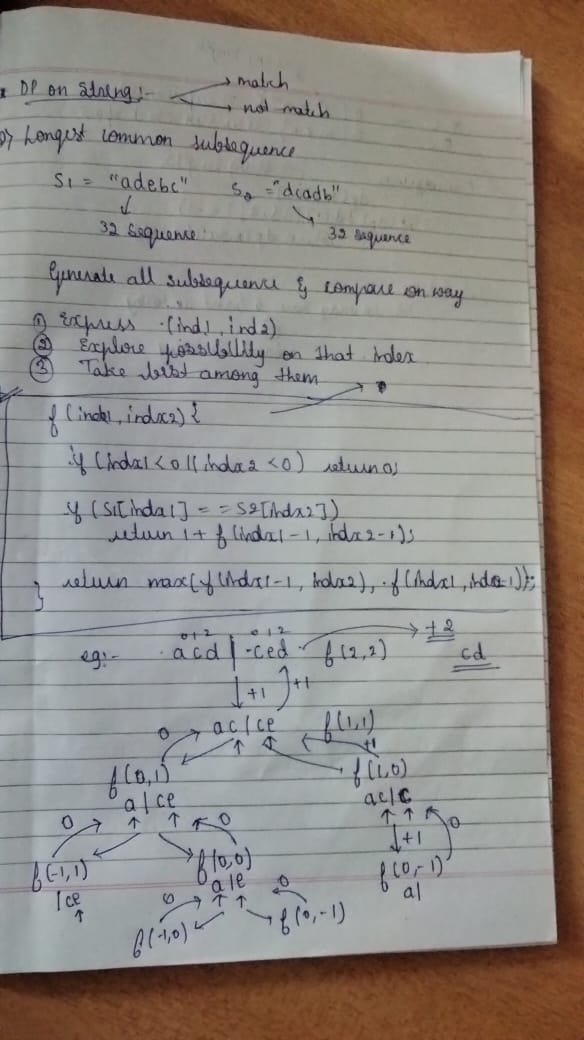 DP on String:- → match
→ not match
Q) Longest common subsequence
S1 = "adebc" S2 = "dcadb"
32 Sequence 32 sequence
Generate all subsequence & compare on way
① Express (ind1, ind2)
② Explore possibility on that index
③ Take best among them
f(indx1, indx2) {
if (indx1 < 0 || indx2 < 0) return 0;
if (S1[indx1] == S2[indx2])
return 1 + f(indx1-1, indx2-1);
return max(f(indx1-1, indx2), f(indx1, indx2-1));
}
0 1 2 0 1 2
eg:- acd | ced f(2,2) → +2
cd
↓ +1 +1
0 ac/ce f(1,1)
+1
f(0,1) f(1,0)
a/ce ac/c
0 0 0
↓ +1
f(-1,1) f(0,0) f(0,-1)
/ce a/e a/
0 0
f(-1,0) f(0,-1)